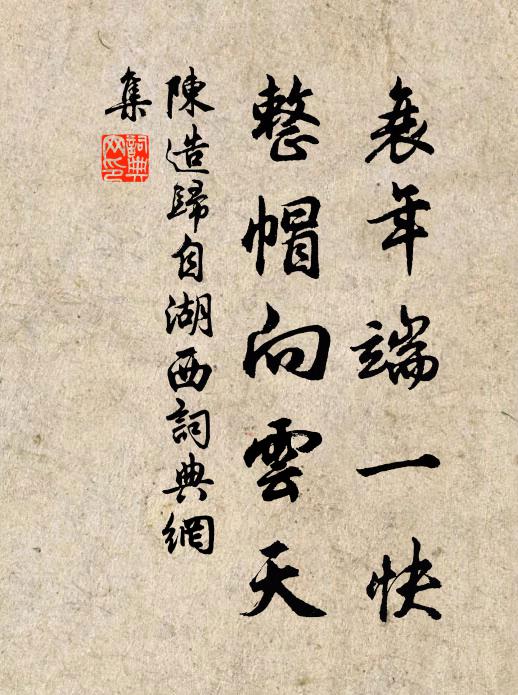 衰年端一快
整帽向雲天
陳造歸自湖西詞典網
集
詞典
网印